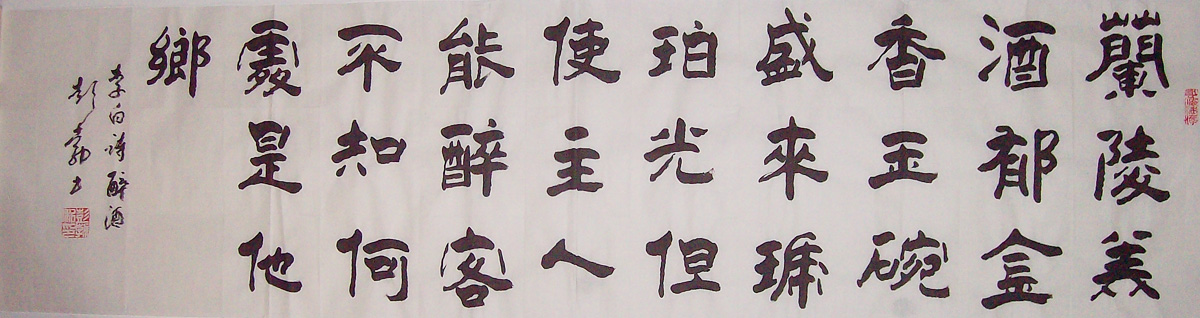 蘭陵美
酒郁金
香玉碗
盛來琥
珀光但
使主人
能醉客
不知何
處是他
鄉
李白詩醉酒
彭勃书